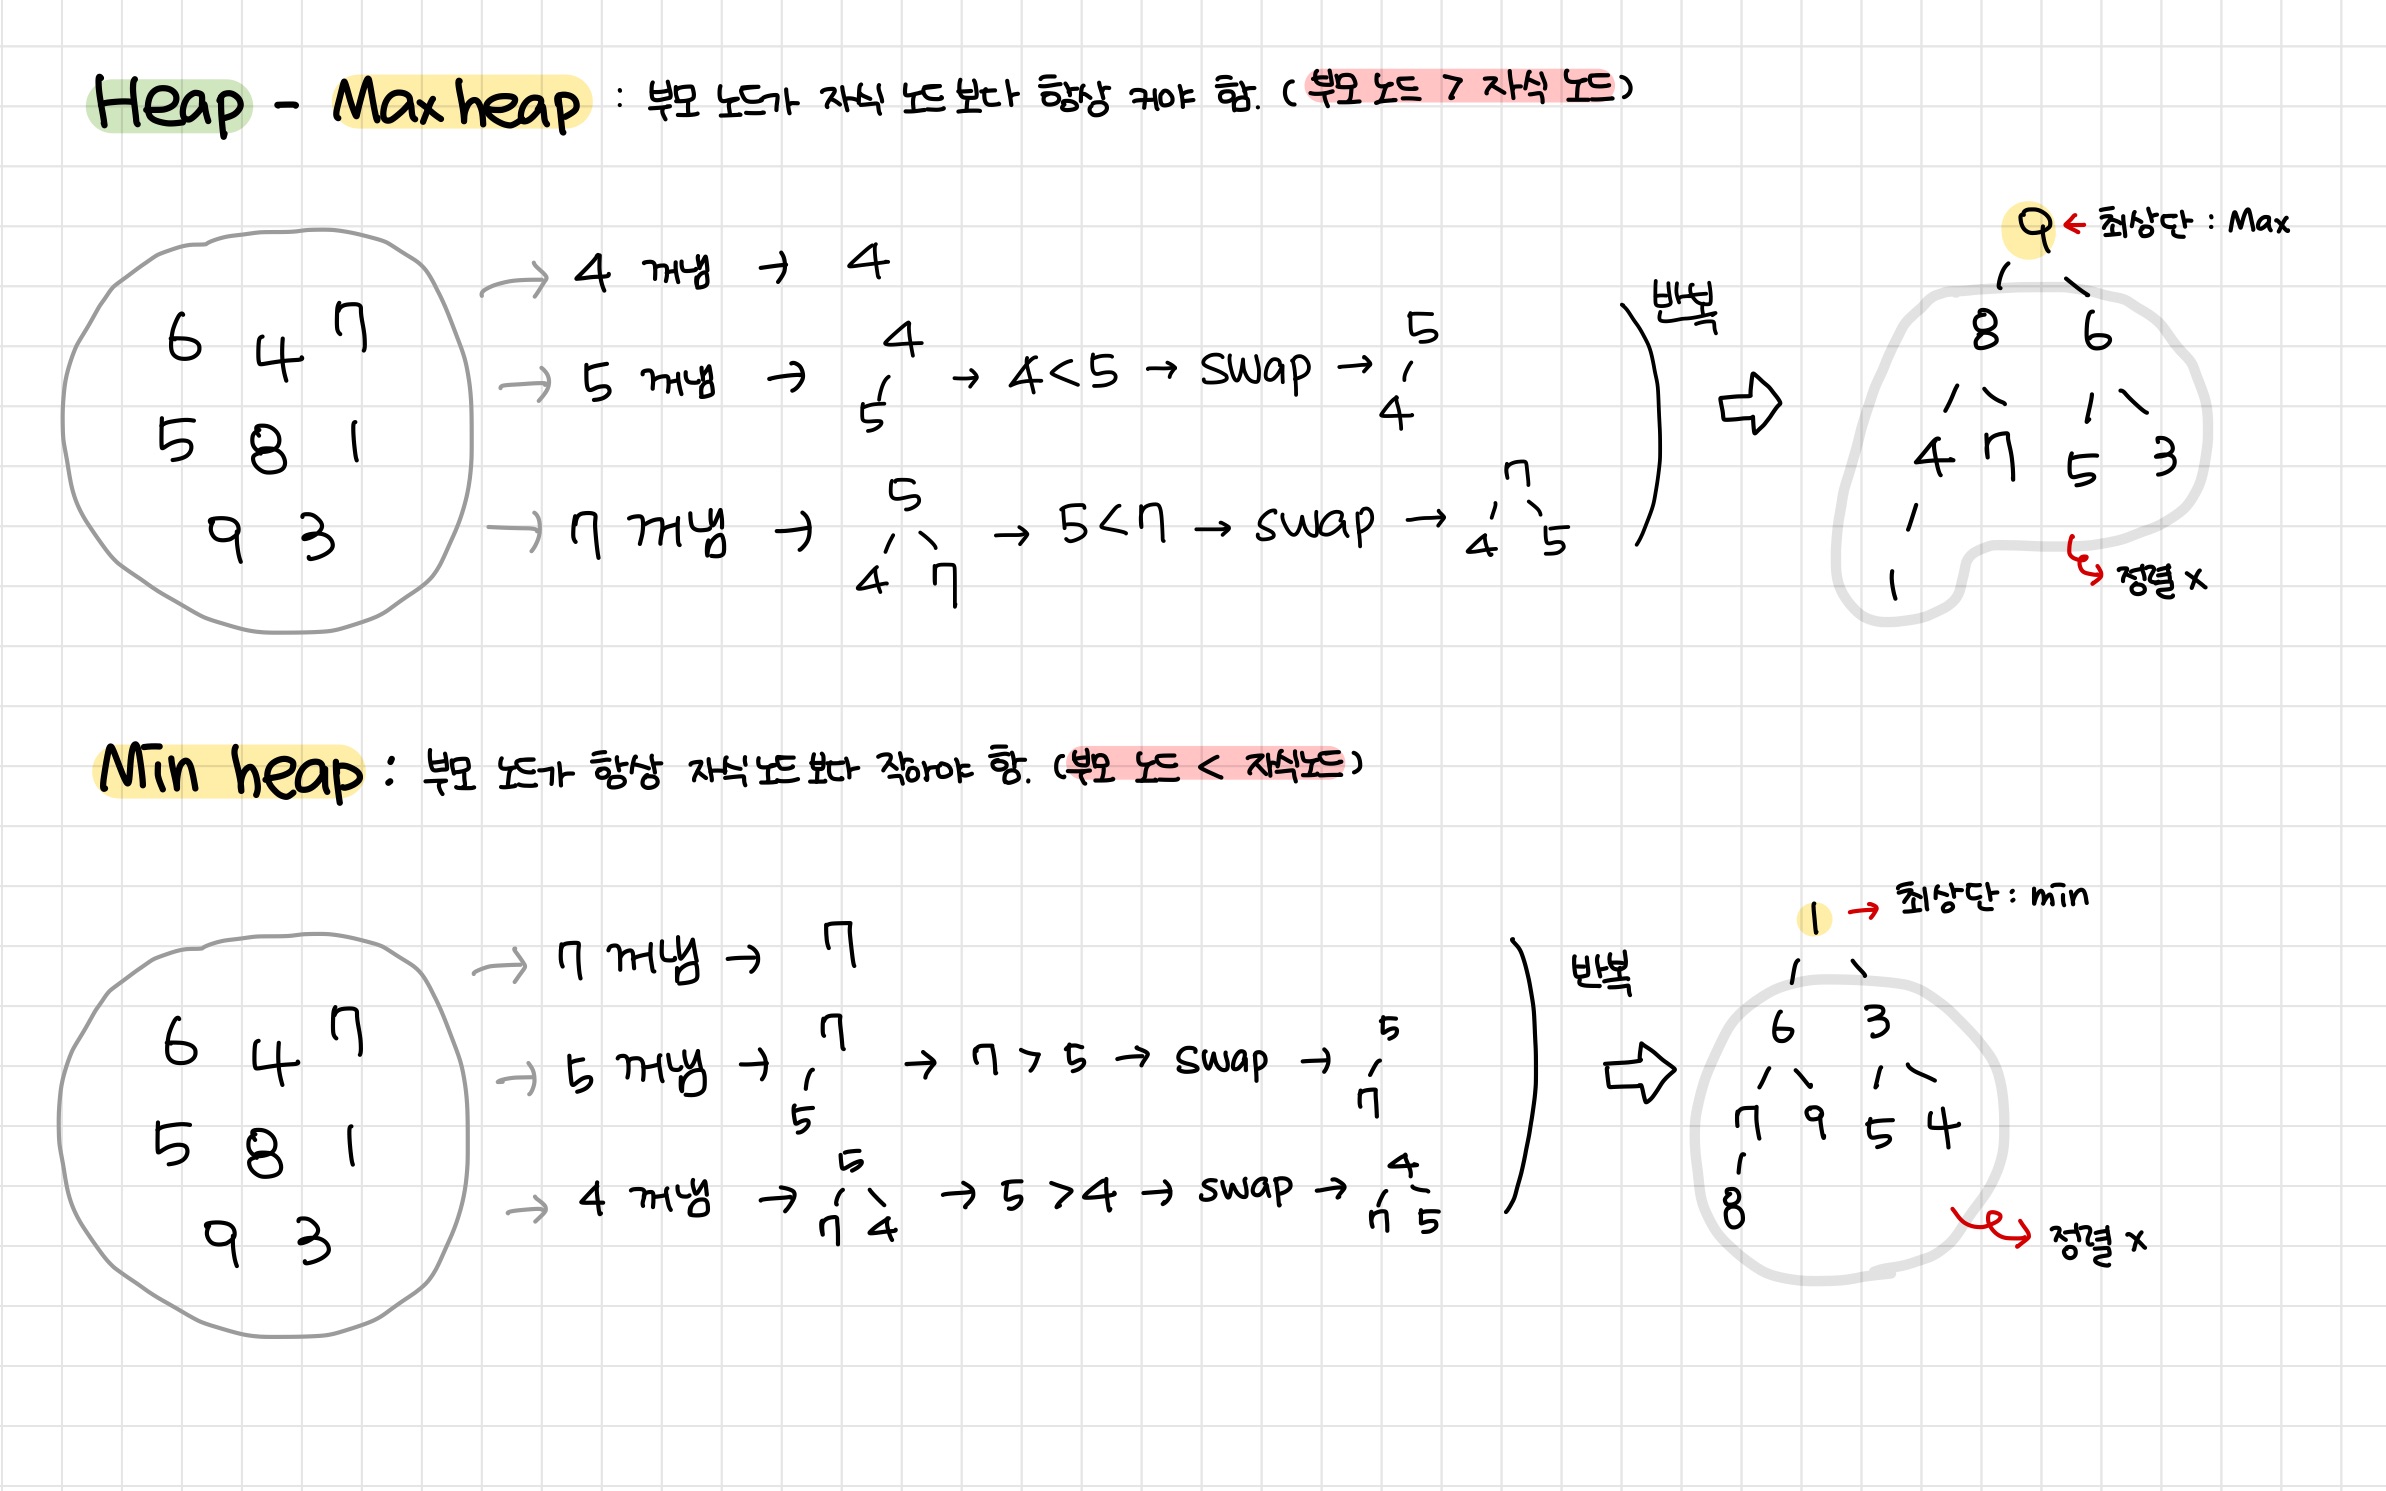 Heap - Max heap : 부모 노드가 자식 노드보다 항상 커야 함. ( 부모 노드 > 자식 노드 )
6 4 7
5 8 1
9 3
4 꺼냄 → 4
5 꺼냄 → 4 5 → 4 < 5 → swap → 5 4
7 꺼냄 → 5 4 7 → 5 < 7 → swap → 7 4 5
반복
9 ← 최상단 : Max
8 6
4 7 5 3
1
정렬 x
Min heap : 부모 노드가 항상 자식노드보다 작아야 함. (부모 노드 < 자식노드)
6 4 7
5 8 1
9 3
7 꺼냄 → 7
5 꺼냄 → 7 5 → 7 > 5 → swap → 5 7
4 꺼냄 → 5 7 4 → 5 > 4 → swap → 4 7 5
반복
1 → 최상단 : min
6 3
7 9 5 4
8
정렬 x